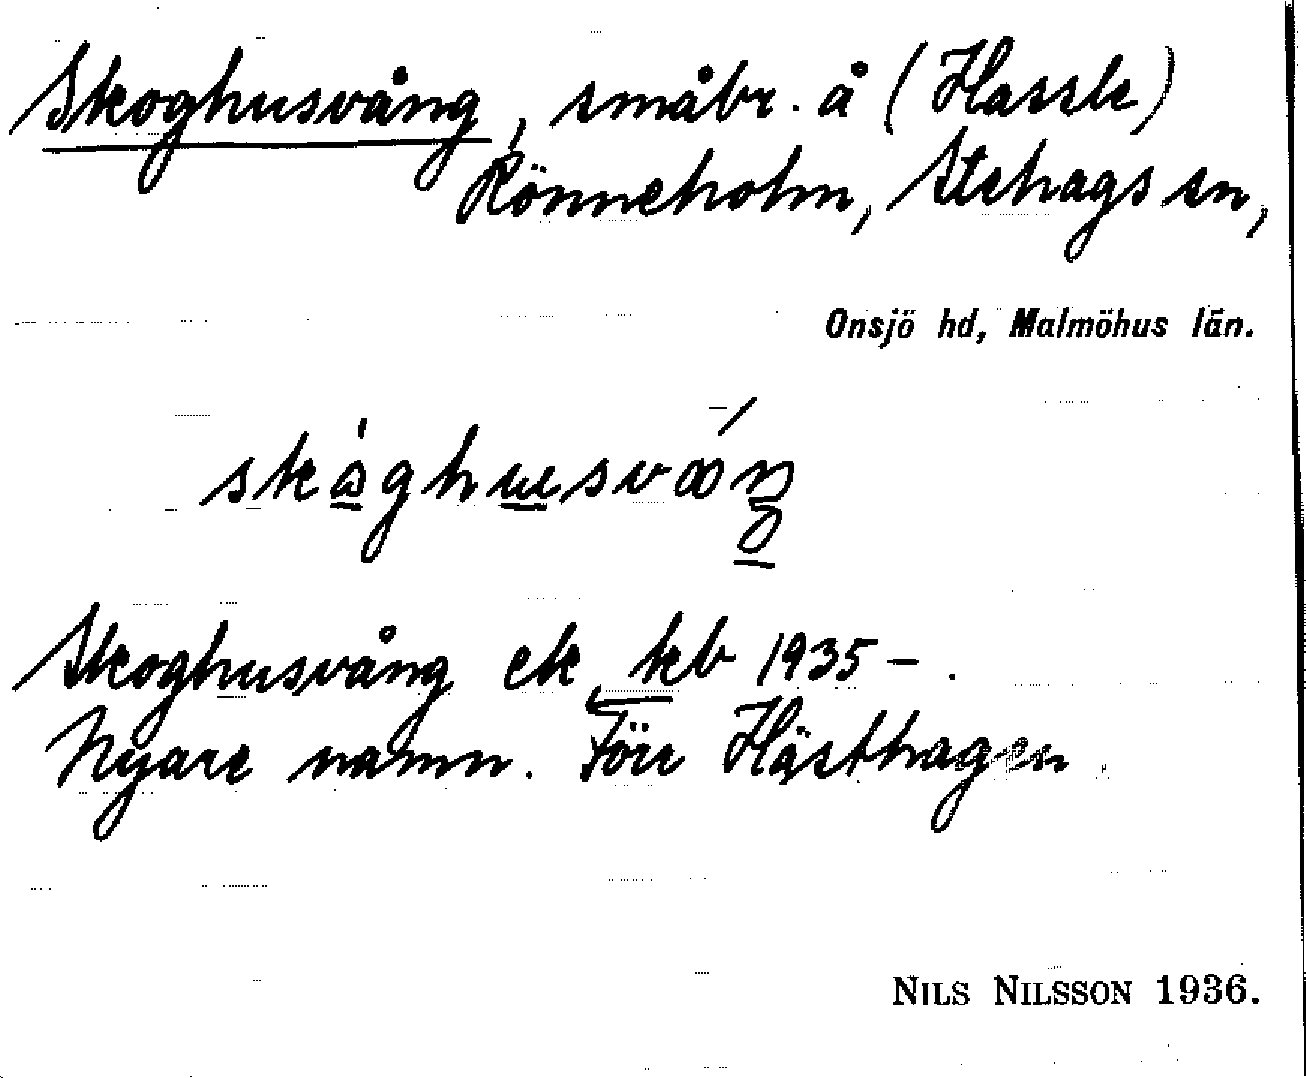 Skoghusvång, småbr. å (Hassle)
Rönneholm, Stehags sn,
Onsjö hd, Malmöhus län.
Skoghusvång ek, kb 1935 – .
Nyare namn. Förr Hästhagen
NILS NILSSON 1936.